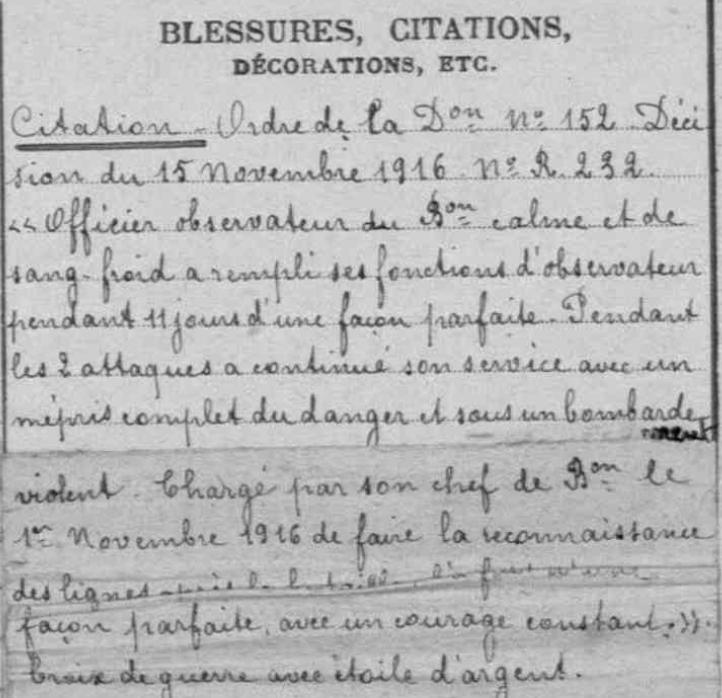 BLESSURES, CITATIONS,
DÉCORATIONS, ETC.
Citation - Ordre de la Don No 152. Déci
sion du 15 Novembre 1916. No R. 232.
« Officier observateur du Bon calme et de
sang-froid a rempli ses fonctions d'observateur
pendant 11 jours d'une façon parfaite. Pendant
les 2 attaques a continué son service avec un
mépris complet du danger et sous un bombarde
ment
violent. Chargé par son chef de Bon le
1er Novembre 1916 de faire la reconnaissance
des lignes l'a fait d'une
façon parfaite, avec un courage constant. »
Croix de guerre avec étoile d'argent.